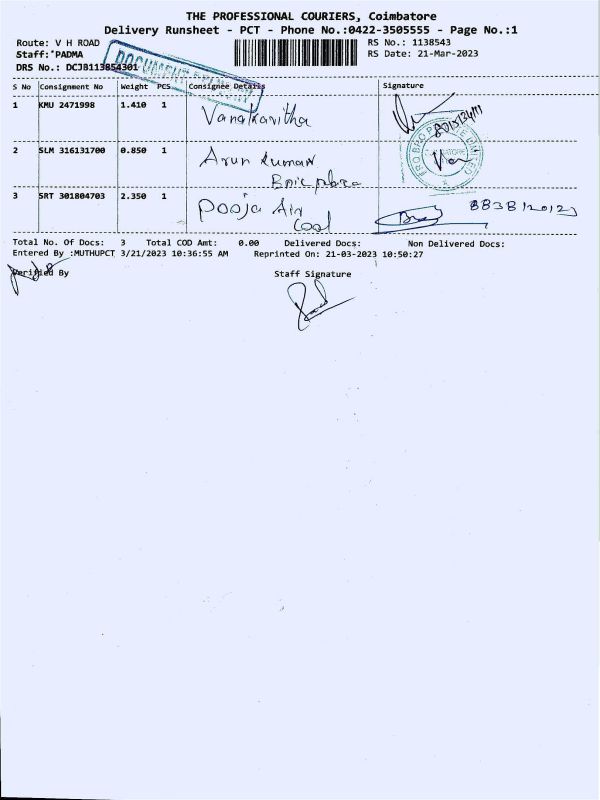 THE PROFESSIONAL COURIERS, Coimbatore
Delivery Runsheet - PCT - Phone No.:0422-3505555 - Page No.:1
Route: V H ROAD RS No.: 1138543
Staff: PADMA RS Date: 21-Mar-2023
DRS No.: DCJB113854301
S No Consignment No Weight PCS Consignee Details Signature
1 KMU 2471998 1.410 1 Vanakavitha
2 SLM 316131700 0.850 1 Arun kumar
3 SRT 301804703 2.350 1 Pooja Air
Cool
Total No. Of Docs: 3 Total COD Amt: 0.00 Delivered Docs: Non Delivered Docs:
Entered By :MUTHUPCT 3/21/2023 10:36:55 AM Reprinted On: 21-03-2023 10:50:27
Verified By Staff Signature